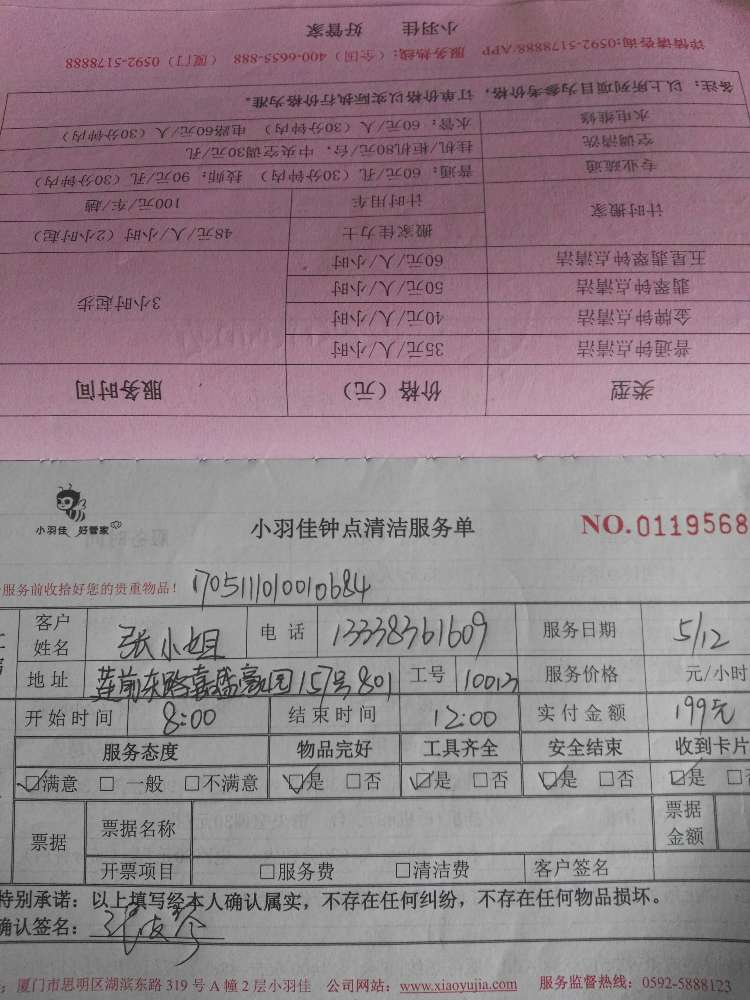 小羽佳 好管家
详情请咨询:0592-5178888/APP 服务热线:(全国)400-6655-888 (厦门)0592-5178888
备注:以上所列项目为参考价格,订单价格以实际执行价格为准。
水电维修 水管:60元/人(30分钟内) 电路60元/人(30分钟内)
空调清洗 挂机/柜机80元/台,中央空调30元/孔
专业疏通 普通:60元/孔(30分钟内) 技师:90元/孔(30分钟内)
计时搬家 计时用车 100元/车/趟
搬家佳力士 48元/人/小时(2小时起)
五星翡翠钟点清洁 60元/人/小时
翡翠钟点清洁 50元/人/小时 3小时起步
金牌钟点清洁 40元/人/小时
普通钟点清洁 35元/人/小时
类型 价格(元) 服务时间
小羽佳 好管家
小羽佳钟点清洁服务单 NO.0119568
服务前收拾好您的贵重物品! 1705111010010684
客户姓名 张小姐 电话 13338361609 服务日期 5/12
地址 莲前东路嘉盛豪园157号801 工号 10013 服务价格 元/小时
开始时间 8:00 结束时间 12:00 实付金额 199元
服务态度 物品完好 工具齐全 安全结束 收到卡片
☑满意 □一般 □不满意 ☑是 □否 ☑是 □否 ☑是 □否 ☑是 □
票据 票据名称 票据金额
开票项目 □服务费 □清洁费 客户签名
特别承诺:以上填写经本人确认属实,不存在任何纠纷,不存在任何物品损坏。
确认签名:
厦门市思明区湖滨东路319号A幢2层小羽佳 公司网站:www.xiaoyujia.com 服务监督热线:0592-5888123